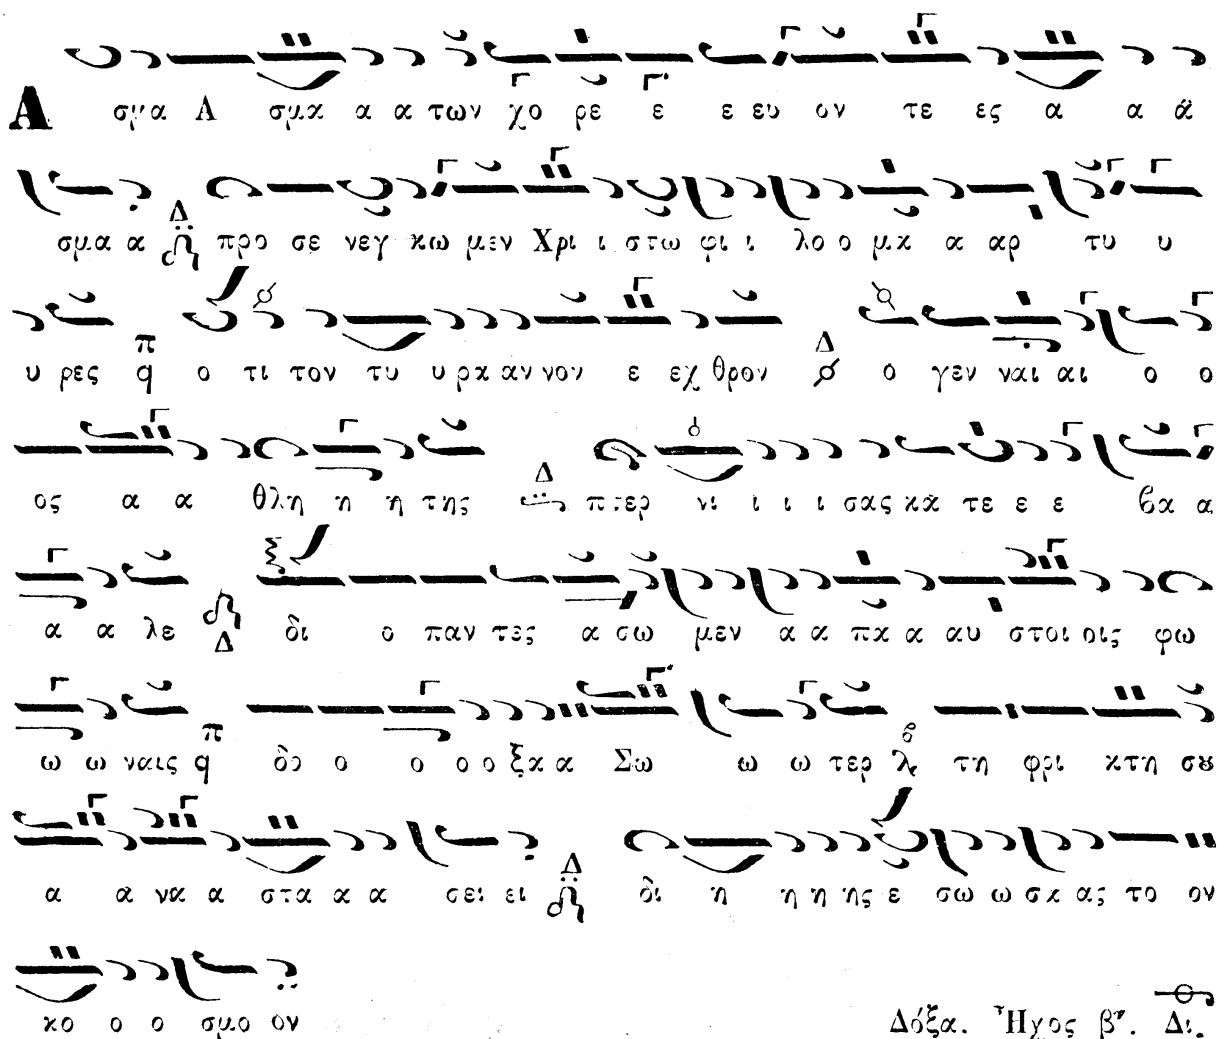 Α σμα Α σμα α α των χο ρε ε ε ευ ον τε ες α α α
σμα α Δ προ σε νεγ κω μεν Χρι ι στω φι ι λο ο μα α αρ τυ υ
υ ρες π q ο τι τον τυ υ ρα αν νον ε εχ θρον Δ ο γεν ναι αι ο ο
ος α α θλη η η της Δ πτερ νι ι ι ι σας κα τε ε ε βα α
α α λε Δ δι ο παν τες α σω μεν α α πα α αυ στοι οις φω
ω ω ναις π q δο ο ο ο ο ξα α Σω ω ω τερ λ τη φρι κτη σȣ
α α να α στα α α σει ει Δ δι η η η ης ε σω ω σα ας το ον
κο ο ο σμο ον
Δόξα. Ἦχος β΄. Δι.